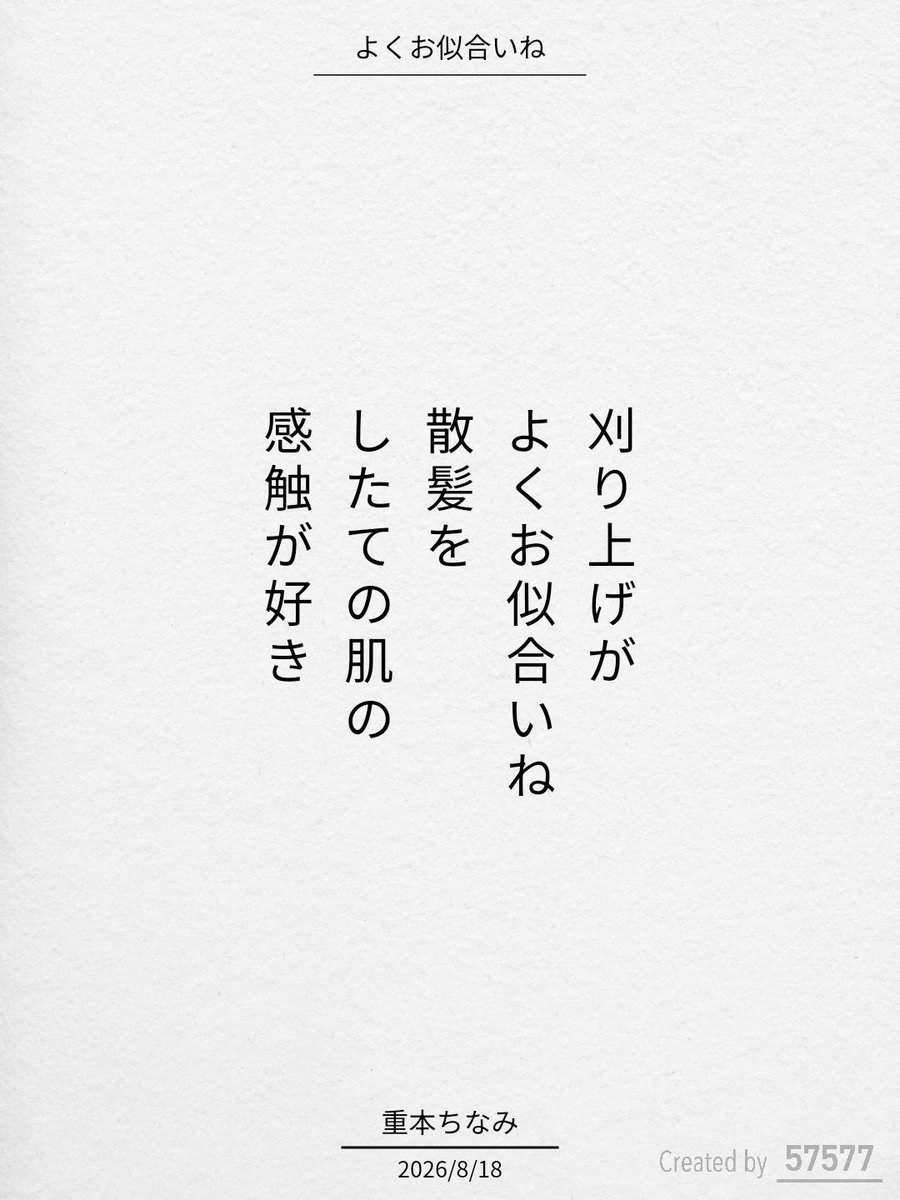 よくお似合いね
刈り上げが
よくお似合いね
散髪を
したての肌の
感触が好き
重本ちなみ
2026/8/18
Created by 57577